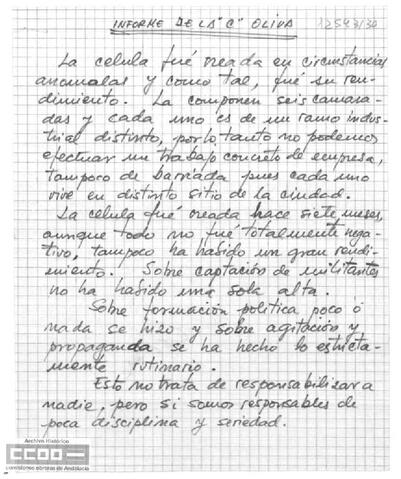 INFORME DE LA "C" OLIVA
12543/30
La celula fué creada en circunstancias
anomalas y como tal, fué su ren-
dimiento. La componen seis camara-
das y cada uno es de un ramo indus-
trial distinto, por lo tanto no podemos
efectuar un trabajo concreto de empresa,
tampoco de barriada pues cada uno
vive en distinto sitio de la ciudad.
La celula fué creada hace siete meses,
aunque todo no fué totalmente nega-
tivo, tampoco ha habido un gran rendi-
miento. Sobre captación de militantes
no ha habido una sola alta.
Sobre formación politica poco ó
nada se hizo y sobre agitación y
propaganda se ha hecho lo estricta-
mente rutinario.
Esto no trata de responsabilizar a
nadie, pero si somos responsables de
poca disciplina y seriedad.
Archivo Histórico
CCOO
comisiones obreras de Andalucía